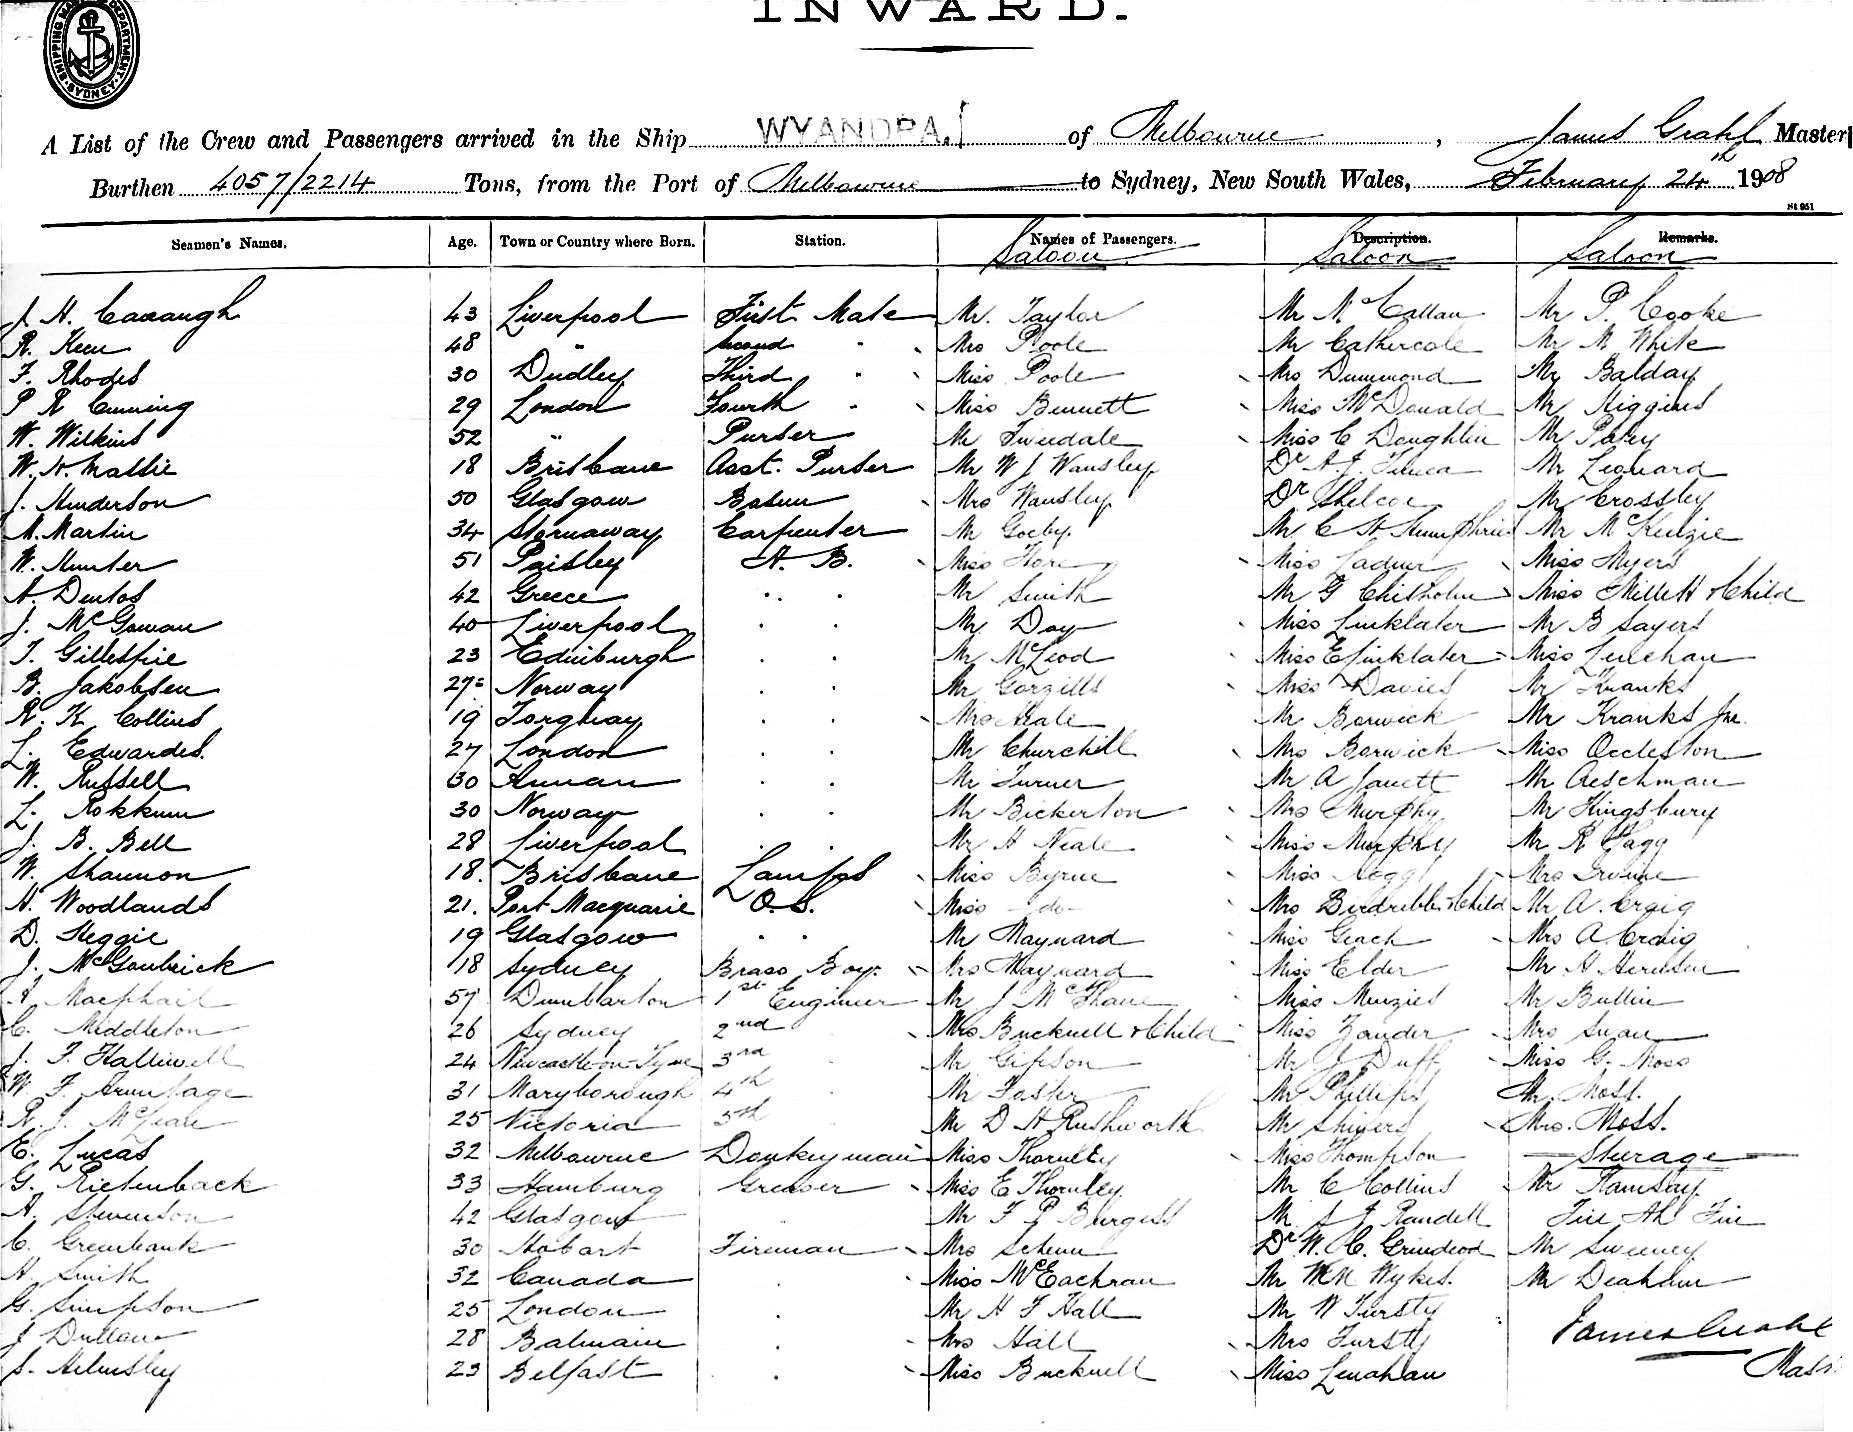 SHIPPING MASTER'S DEPARTMENT · SYDNEY ·
INWARD.
A List of the Crew and Passengers arrived in the Ship WYANDRA. of Melbourne, James Grahl Master
Burthen 4057/2214 Tons, from the Port of Melbourne to Sydney, New South Wales, February 24th 1908
St 951
Seamen's Names. Age. Town or Country where Born. Station. Names of Passengers. Description. Remarks.
Saloon Saloon Saloon
J. H. Cavanagh 43 Liverpool First Mate Mr. Taylor Mr McCallan Mr P. Cooke
R. Keen 48 " Second " Mrs Poole Mr Cathercole Mr M White
F. Rhodes 30 Dudley Third " Miss Poole Mrs Dummond Mr Balday
P R Cumming 29 London Fourth " Miss Bennett Miss McDonald Mr Higgins
W. Wilkins 52 " Purser Mr Tweedale Miss C Doughlin Mr Patey
W. H. Mallie 18 Brisbane Asst. Purser Mr W J Wansley Dr A. J. Mr Leonard
J. Henderson 50 Glasgow Bosun Mrs Wansley Dr Mr Crossley
M. Martin 34 Stornaway Carpenter Mr Goeby Mr C H Humphries Mr McKenzie
W. Hunter 51 Paisley A. B. Miss Hore Miss Ladner Miss Myers
A. Dentos 42 Greece " Mr Smith Mr G Chisholm Miss Millett & Child
J. McGowan 40 Liverpool " Mr Day Miss Linklater Mr B Sayers
T. Gillespie 23 Edinburgh " Mr McLeod Miss E Linklater Miss Lenehan
B. Jakobsen 27 Norway " Mr Gorzills Miss Davies Mr Kranks
R. K Collins 19 Torquay " Mrs Neale Mr Borwick Mr Kranks Jnr.
L. Edwardes. 27 London " Mr Churchill Mrs Borwick Miss Occleston
W. Russell 30 Annan " Mr Turner Mr A Jowett Mr Aeschman
L. Rokkum 30 Norway " Mr Bickerton Mrs Murphy Mr Kingsbury
J. B. Bell 28 Liverpool " Mr H Neale Miss Murphy Mr R Fagg
W. Shannon 18. Brisbane Lamps Miss Byrne Miss Mrs Irvine
H. Woodlands 21. Port Macquarie O.S. Miss -do- Mrs Birdribble & Child Mr A. Craig
D. Heggie 19 Glasgow " Mr Maynard Miss Geach Mrs A. Craig
J. McGoulrick 18 Sydney Brass Boy. Mrs Maynard Miss Elder Mr H Herdson
A Macphail 57 Dumbarton 1st Engineer Mr J McShane Miss Menzies Mr Bullin
C. Middleton 26 Sydney 2nd Mrs Bucknell & Child Miss Zander Mrs Swan
J. F. Halliwell 24 Newcastle-on-Tyne 3rd Mr Gipson Mr J Duff Miss G. Moss
W F. Armitage 31 Maryborough 4th Mr Foster Mr Phillips Mr. Moss.
R. J. McLean 25 Victoria 5th Mr D H Rushworth Mr Shivers Mrs. Moss.
E. Lucas 32 Melbourne Donkeyman Miss Thornley Miss Thompson Steerage
G. Rietenback 33 Hamburg Greaser Miss E Thornley Mr C Collins Mr Ramsay
A. Stevenson 42 Glasgow Mr F P Burgess Mr A J Randell Tin Ah Tin
C. Greenbank 30 Hobart Fireman Mrs Schenn Dr W. C. Grindrod Mr Sweeney
H. Smith 32 Canada " Miss McEachran Mr WM Wykes. Mr Deaham
G. Simpson 25 London " Mr H F Hall Mr W Tursty
J Dullan 28 Balmain " Mrs Hall Mrs Tursty James Grahl
S. Helmsley 23 Belfast " Miss Bucknell Miss Lenahan Master